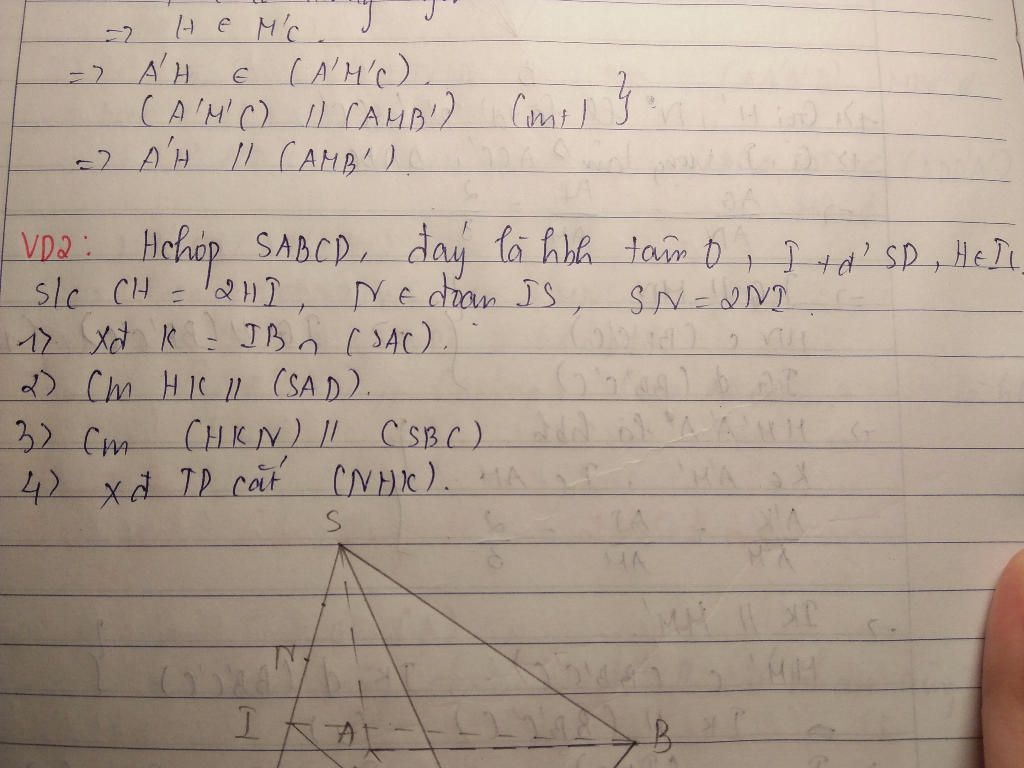 => H ∈ M'C.
=> A'H ∈ (A'M'C).
(A'M'C) // (AMB') (cmt) }
=> A'H // (AMB').
VD2: Hchóp SABCD, đáy là hbh tâm O, I tđ' SD, H∈IC
s/c CH = 2HI, N ∈ đoạn IS, SN = 2NI.
1) Xđ K = IB ∩ (SAC).
2) Cm HK // (SAD).
3) Cm (HKN) // (SBC)
4) Xđ TD cắt (NHK).
S
N
I A B